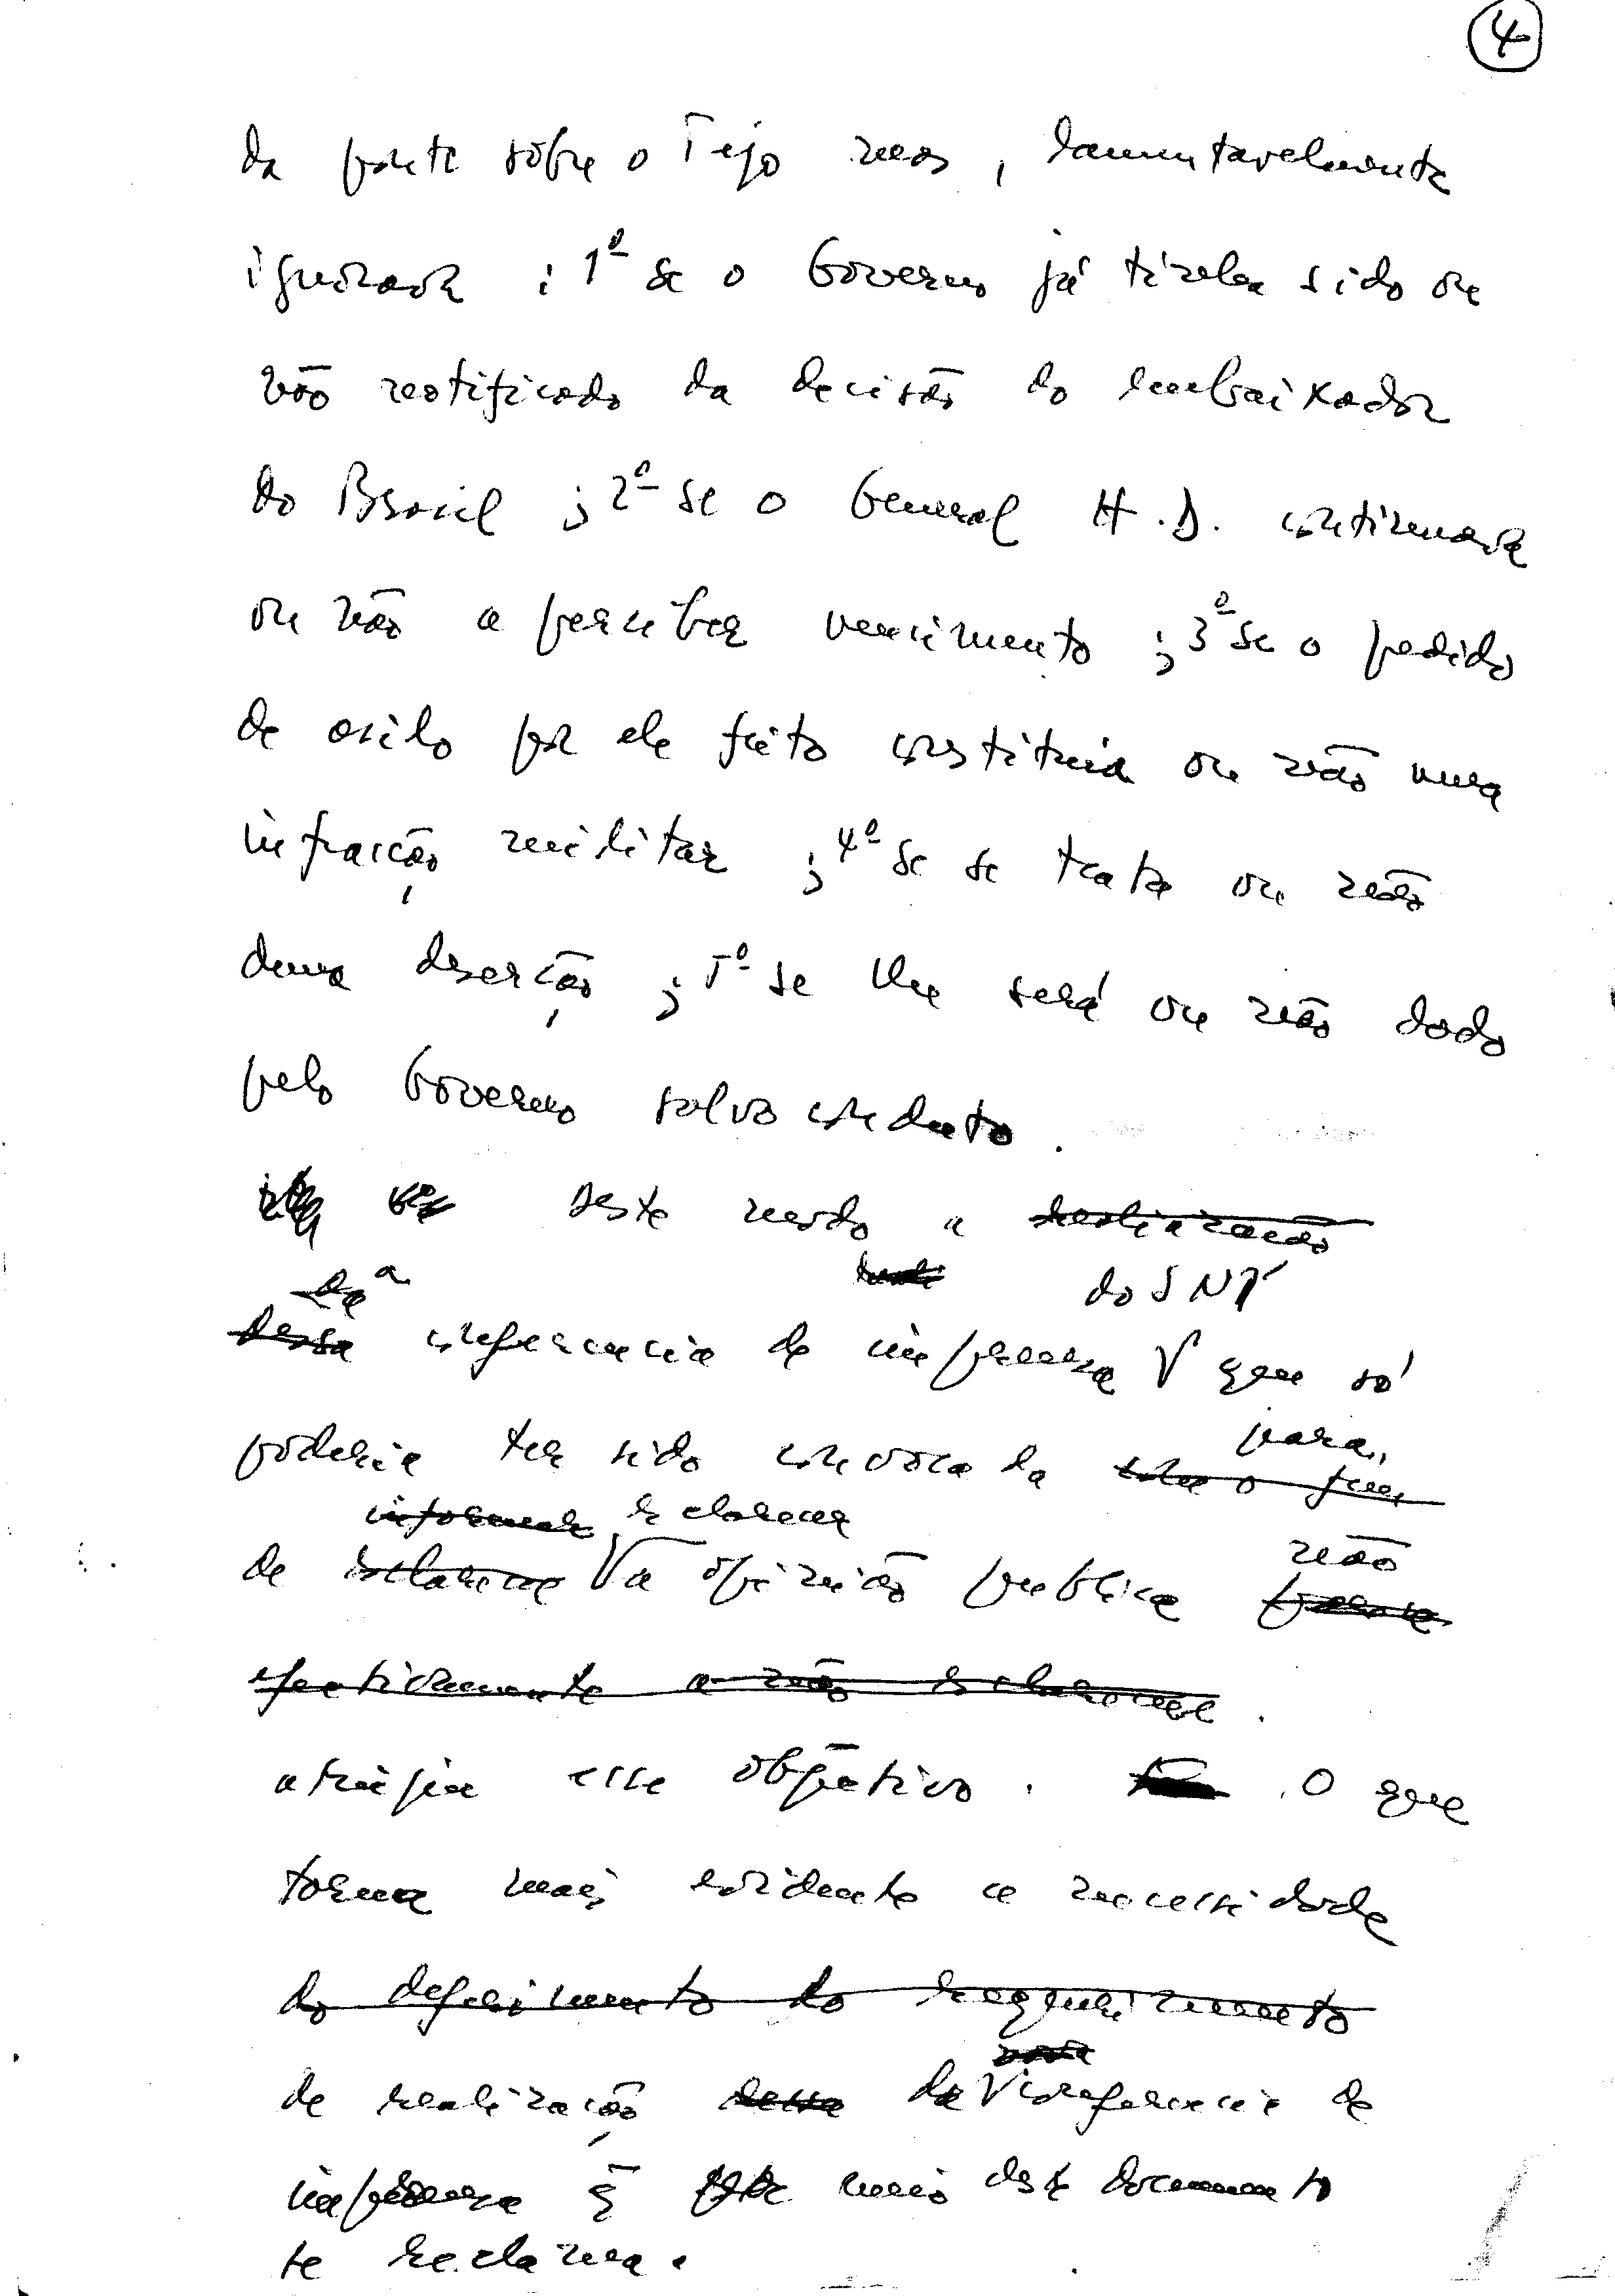 4
da ponte sôbre o Tejo mas, lamentavelmente
ignorava: 1º se o Governo já tinha sido ou
não notificado da decisão do embaixador
do Brasil; 2º se o General H. D. continuava
ou não a perceber vencimento; 3º se o pedido
de asilo por ele feito constituia ou não uma
infracção militar; 4º se se trata ou não
duma deserção; 5º se lhe será ou não dado
pelo Governo salvo conduto.
deste modo a realização
da a do SNI
dessa conferencia de imprensa V que só
poderia ter sido convocada com o fim
para,
informar esclarecer
de esclarecer V a opinião publica
não
efectivamente a não esclareceu.
atingia esse objetivo. O que
torna mais evidente a necessidade
do deferimento do requerimento
de realização dessa da V conferencia de
imprensa q̃ por meio deste documento
se reclama.